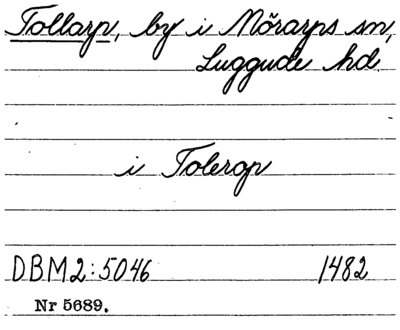 Tollarp, by i Mörarps sn,
Luggude hd.
i Tolerop
DBM2:5046 1482
Nr 5689.